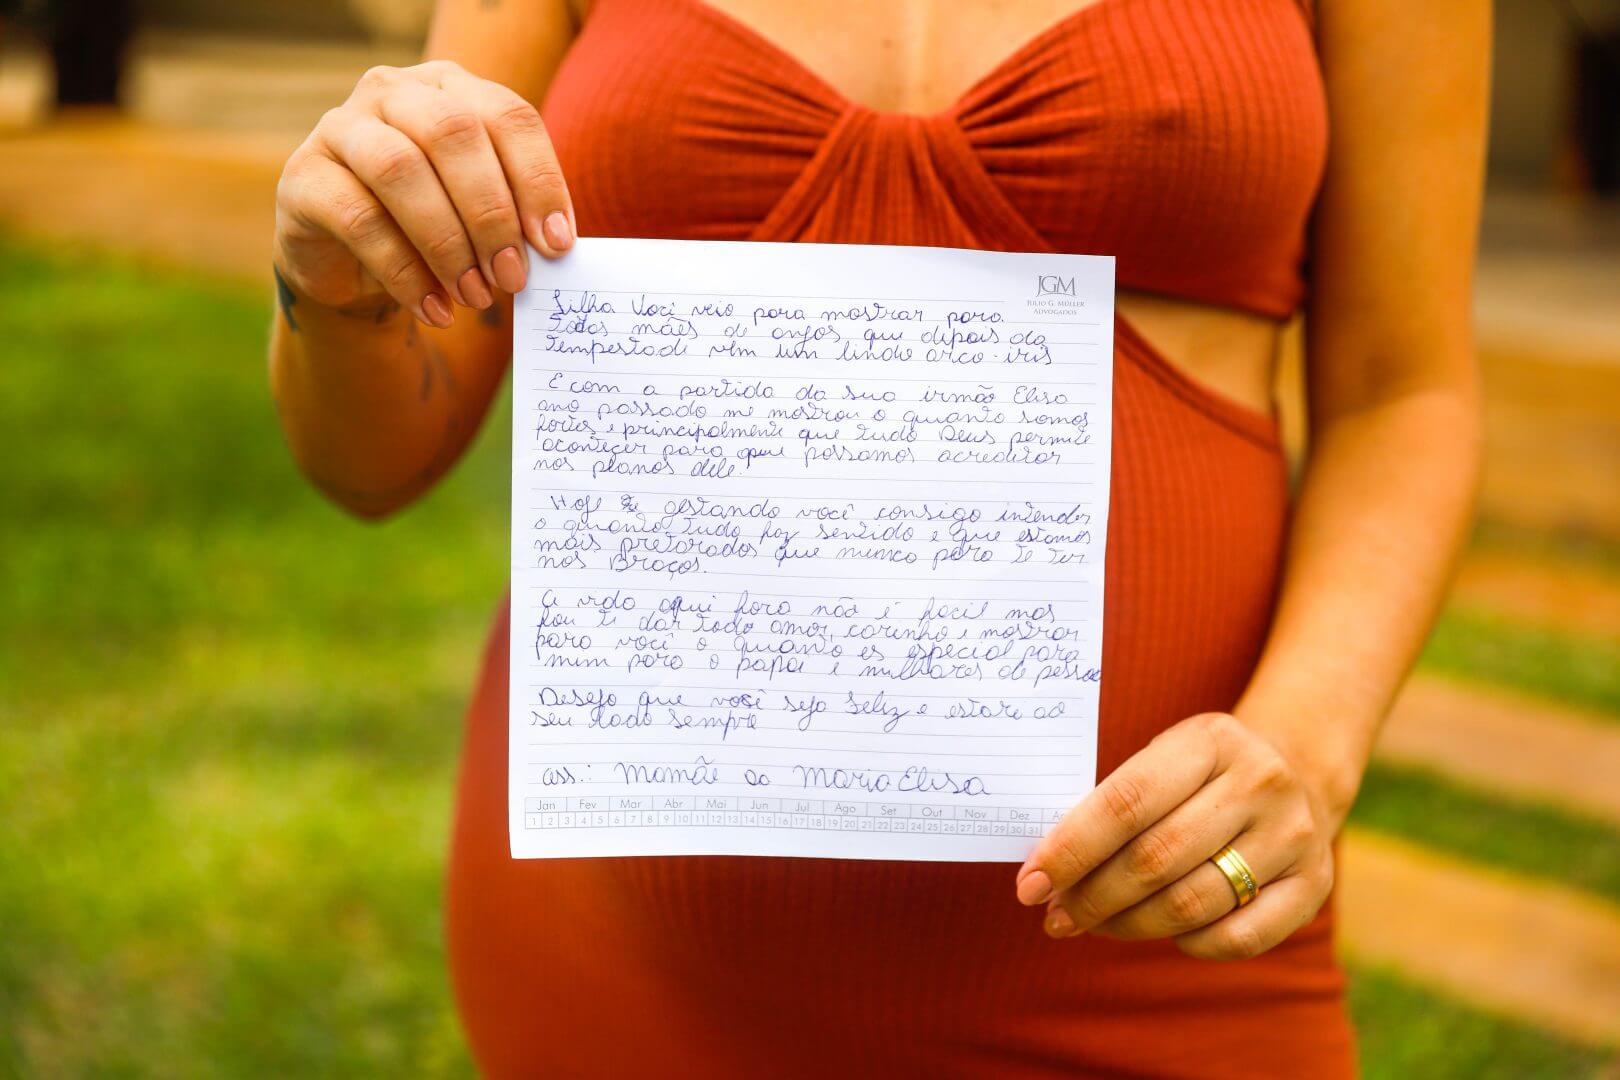 JGM
JULIO G. MÜLLER
ADVOGADOS
Filha Você veio para mostrar para
Todas mães de anjos que depois da
Tempestade vêm um lindo arco-iris
E com a partida da sua irmão Elisa
ano passado me mostrou o quanto somos
fortes e principalmente que tudo Deus permite
acontecer para que possamos acreditar
nos planos dele.
Hoje gestando você consigo intender
o quanto tudo faz sentido e que estamos
mais pretarados que nunca para te ter
nos Braços.
A vida aqui fora não é facil mas
fou te dar todo amor, carinho e mostrar
para você o quanto es especial para
mim para o papai e milhares de pessoa
Desejo que você seja feliz e estarei ao
seu lado sempre
ass.: Mamãe da Maria Elisa
Jan Fev Mar Abr Mai Jun Jul Ago Set Out Nov Dez
1 2 3 4 5 6 7 8 9 10 11 12 13 14 15 16 17 18 19 20 21 22 23 24 25 26 27 28 29 30 31